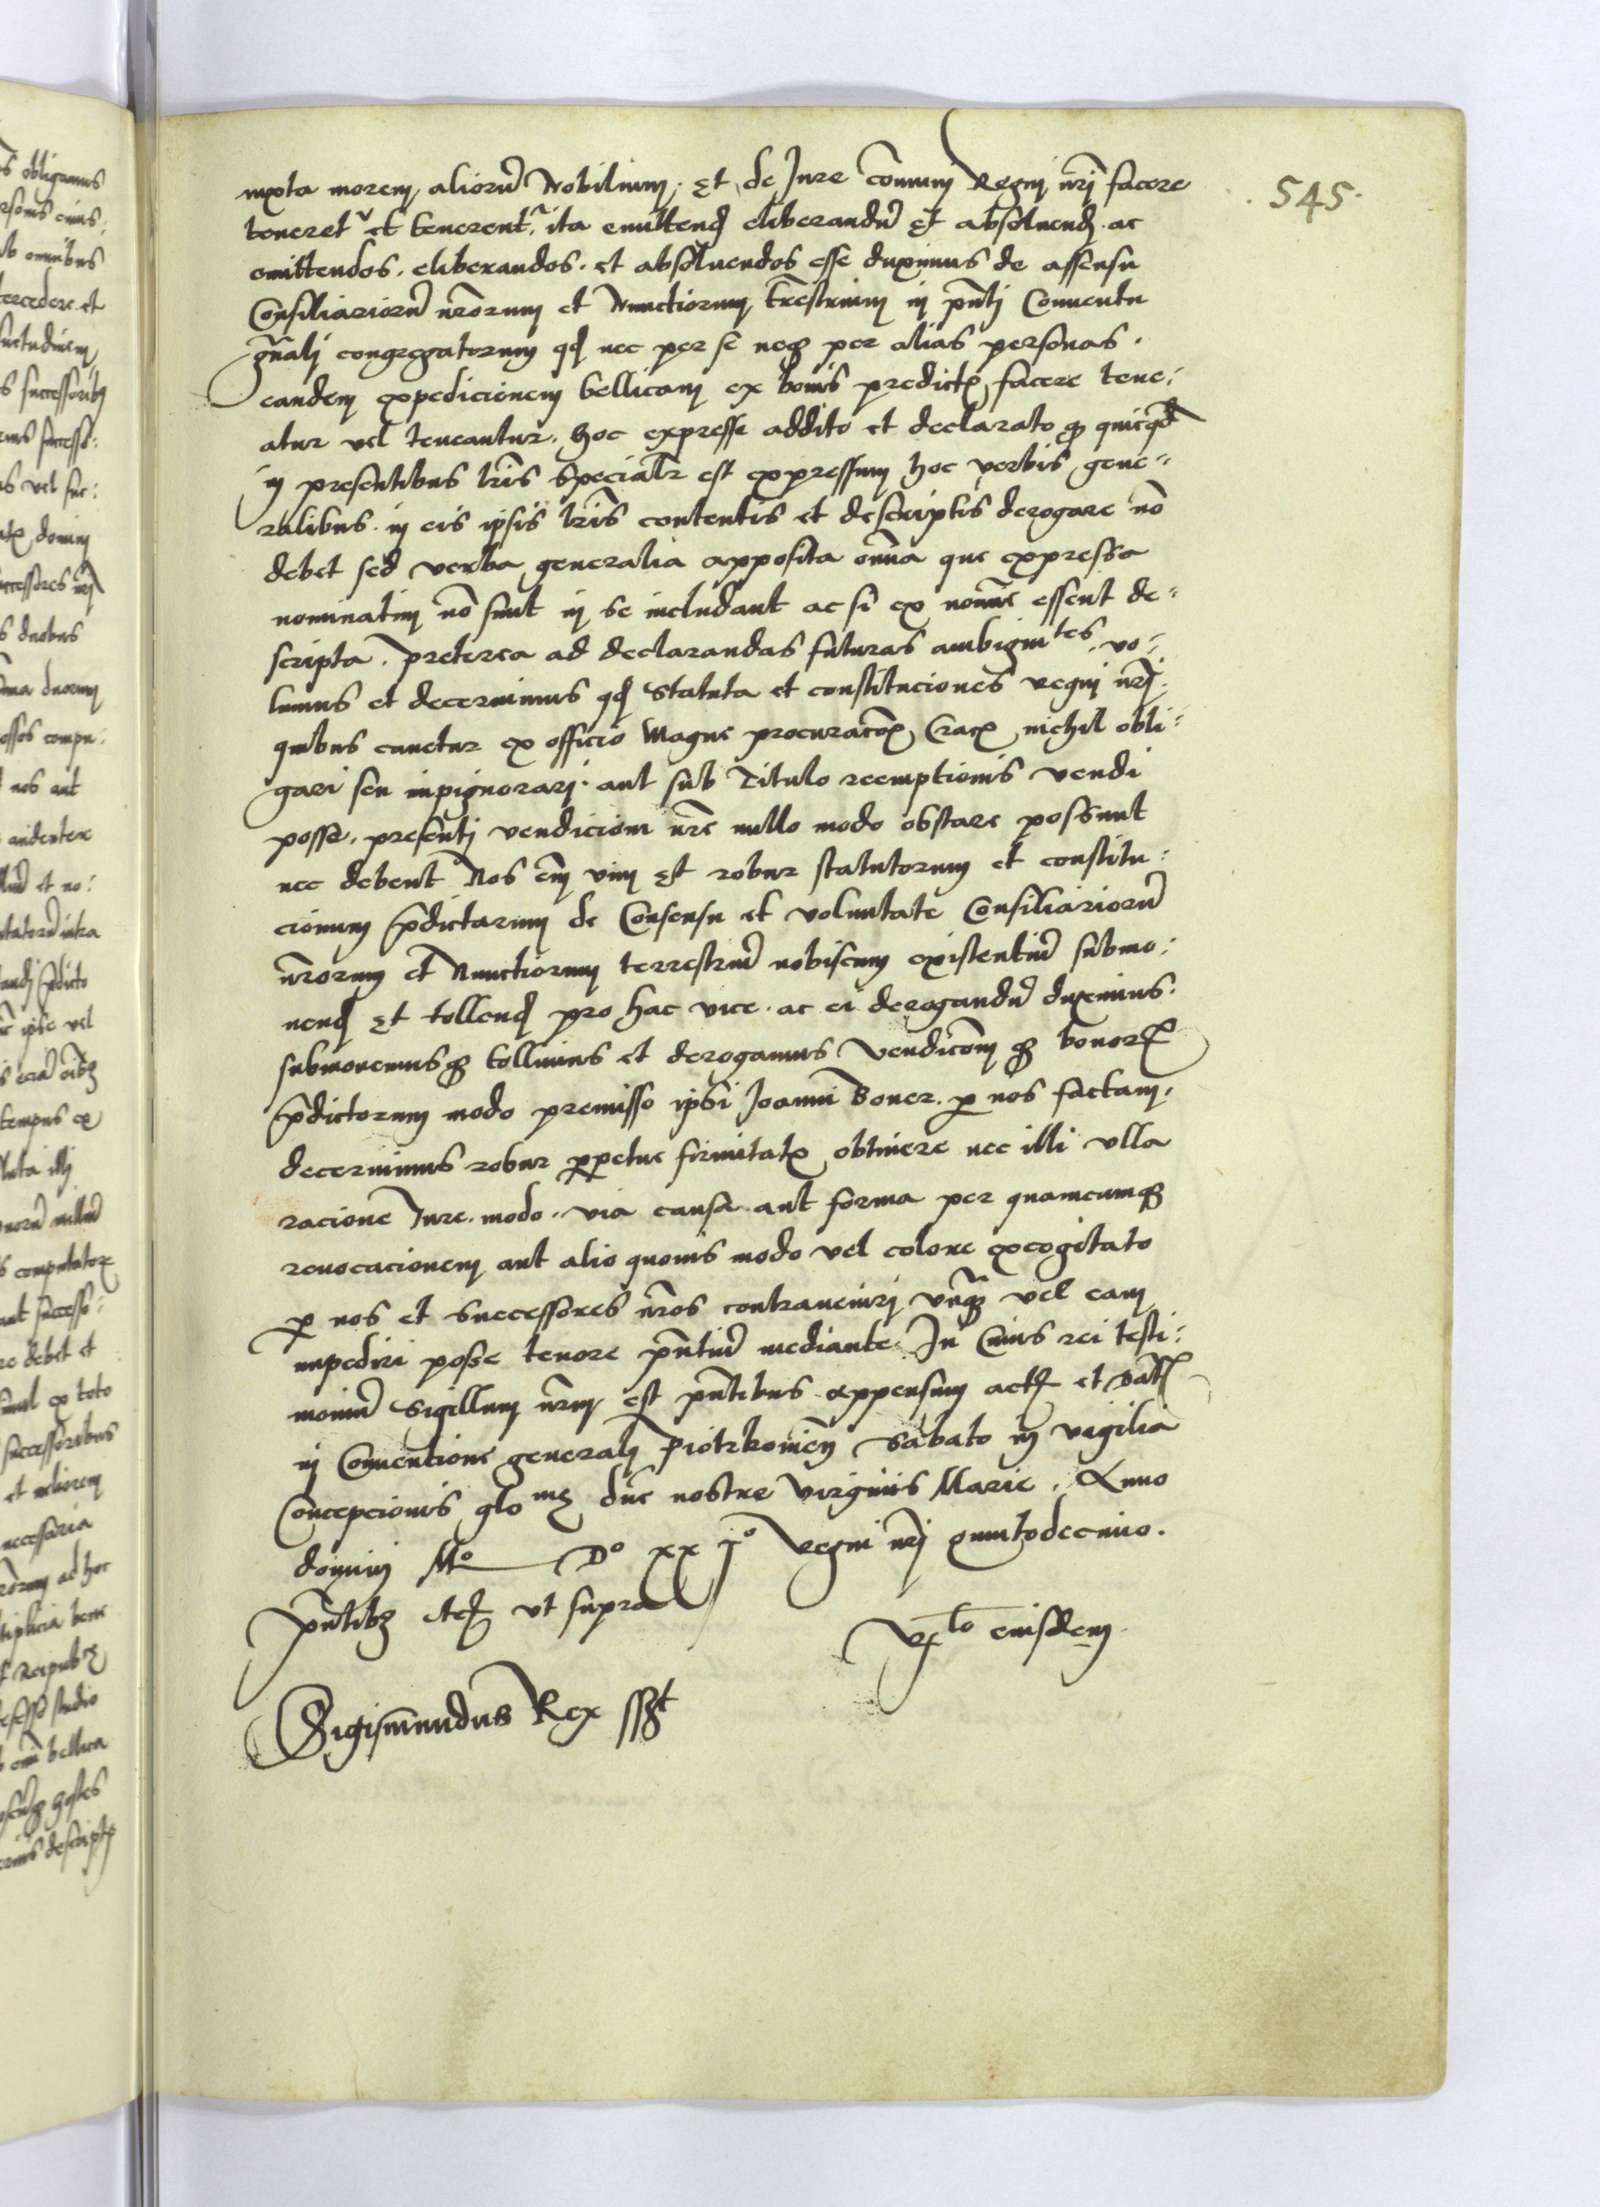 545.
iuxta morem aliorũ Nobilium. Et de Jure cõmuni Regni nrĩ facere
teneret^r et tenerent^r. ita emittend eliberandũ Et absoluend. ac
emittendos. eliberandos. et absoluendos esse duximus de assensu
Consiliariorũ nrõrum et Nunctiorum trẽstrium in pñti Conuentu
gñali congregatorum qd nec per se neqȝ per alias personas.
eandem expedicionem bellicam ex bonis predictis facere tene:
atur vel teneantur. Hoc expresse addito et declarato qȝ quicqd
in presentibus lrĩs specialr est expressum hoc verbis gene:
ralibus in eis ipsis lrĩs contentis et descriptis derogare nõ
debet sed verba generalia apposita oñia que expressa
nominatim nõ sunt in se includant ac si ex noñie essent de:
scripta. Preterea ad declarandas futuras ambigui^tes. vo:
lumus et decernimus qd Statuta et constituciones regni nrĩ.
quibus cauetur ex officio Magne procuracõis Crac nichil obli:
gari seu inpignorari. aut sub Titulo reemptionis vendi
posse. presenti vendicioni nrẽ nullo modo obstare possunt
nec debent Nos em̃ vim Et robur statutorum et constitu:
cionum p̃dictarum de Consensu et voluntate Consiliariorũ
nrõrum et Nunctiorum terrestriũ nobiscum existentiũ submo:
uend Et tollend pro hac vice. ac ei derogandũ duximus.
submouemusqȝ tollimus et derogamus Vendicõm qȝ bonor
p̃dictorum modo premisso ipsi Joanni Boner. p nos factam.
decernimus robur ppetue firmitatis obtinere nec illi vlla
racione Jure. modo. via causa aut forma per quamcumqȝ
reuocacionem aut alio quouis modo vel colore excogitato
p nos et Successores nrõs contraueniri vnq̃ȝ vel eam
impediri posse tenore pñtiũ mediante. In Cuius rei testi:
moniũ Sigillum nrm̃ est pñtibus appensum act et Dat
in Conuentione generali Piotrkouień Sabato in vigilia
Concepcionis glo^me dñe nostre Virginis Marie. Anno
domini M^o D^o xx j^o Regni nrĩ quintodecimo.
pñtibȝ Act vt supra
R^to eiusdem
Sigismundus Rex sst